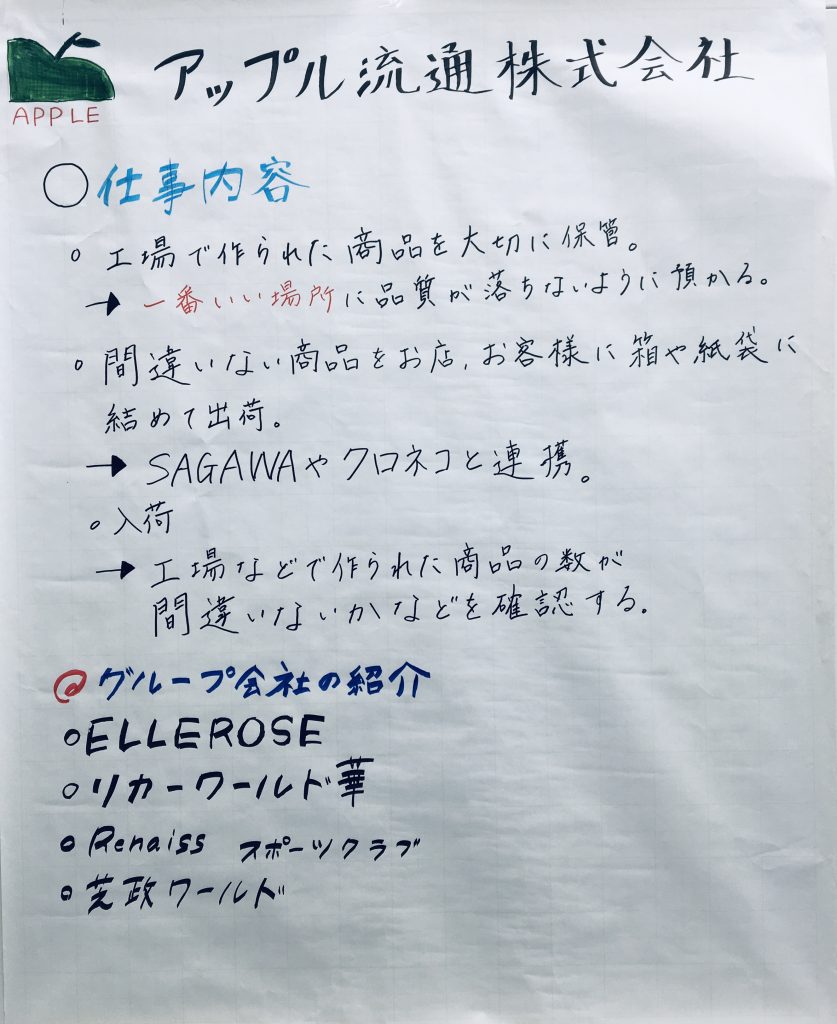 アップル流通株式会社
APPLE
○仕事内容
○ 工場で作られた商品を大切に保管。
→ 一番いい場所に品質が落ちないように預かる。
○ 間違いない商品をお店,お客様に箱や紙袋に
結めて出荷。
→ SAGAWAやクロネコと連携。
○入荷
→ 工場などで作られた商品の数が
間違いないかなどを確認する.
@グループ会社の紹介
○ELLEROSE
○リカーワールド華
○Renaiss スポーツクラブ
○芝政ワールド